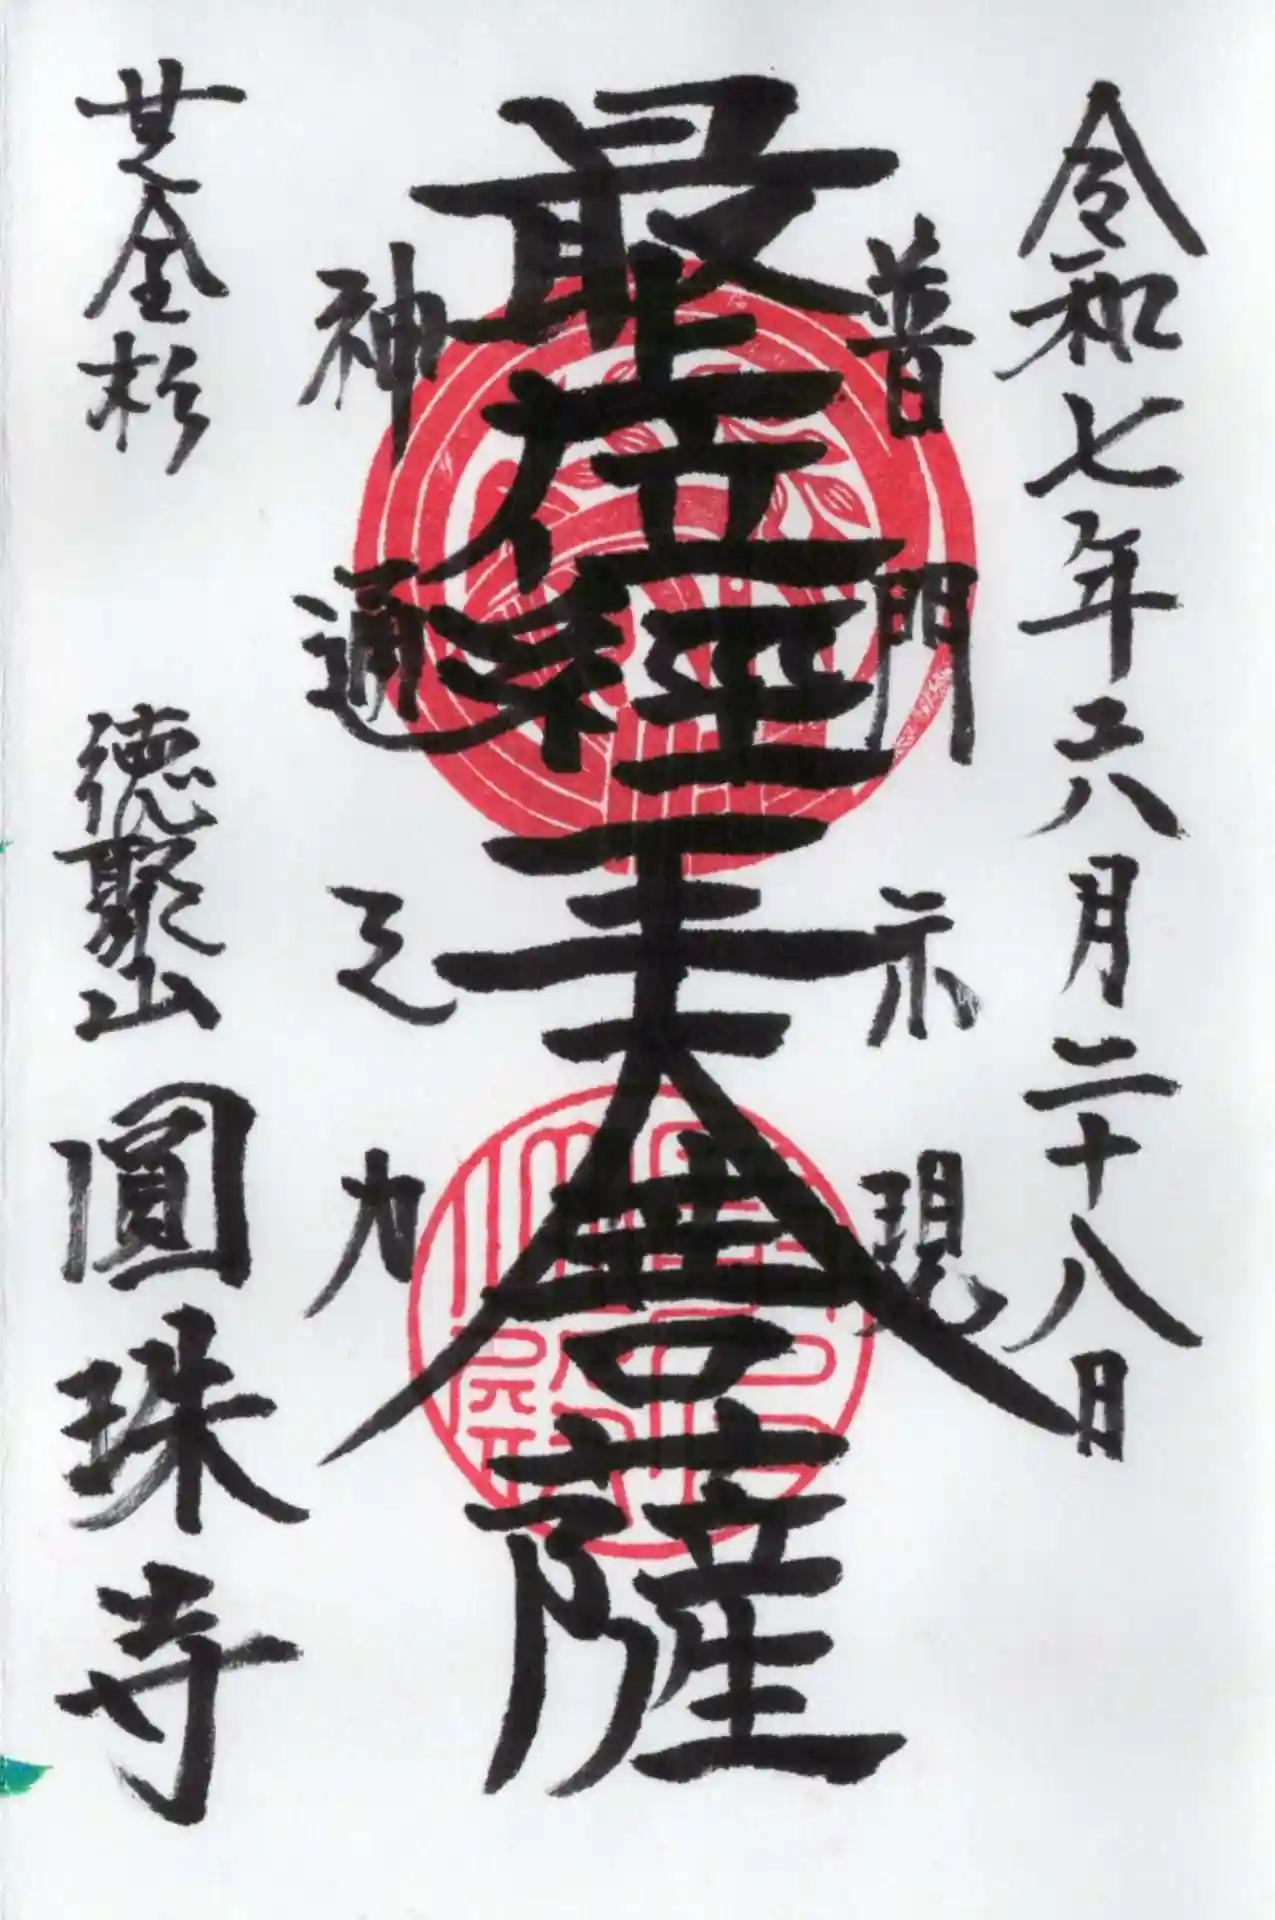 令和七年六月二十八日
普門示現
最上位經王大菩薩
神通之力
芝金杉 徳聚山 圓珠寺